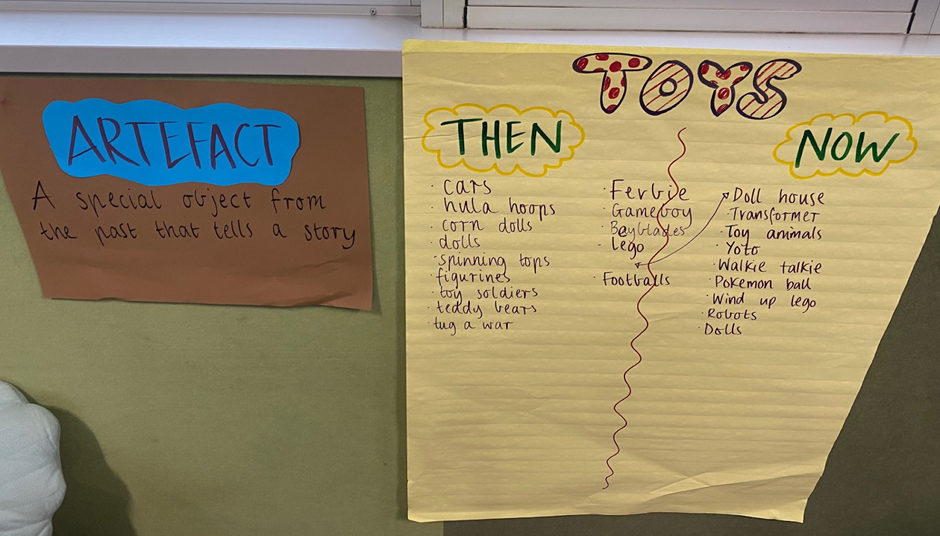 ARTEFACT
A special object from
the past that tells a story
TOYS
THEN
· cars
· hula hoops
· corn dolls
· dolls
· spinning tops
· figurines
· toy soldiers
· teddy bears
· tug a war
· Ferbie
· Gameboy
· Beyblades
· Lego
· Footballs
NOW
Doll house
· Transformer
· Toy animals
· Yoto
· Walkie talkie
· Pokemon ball
· Wind up lego
· Robots
· Dolls